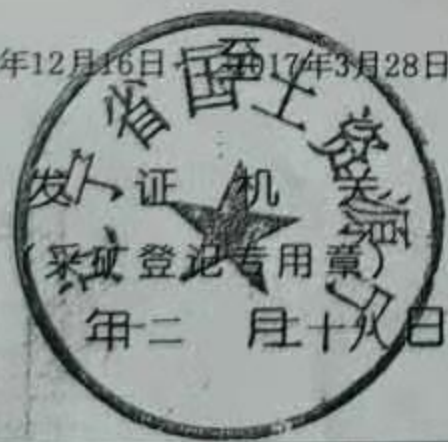 年12月16日 至2017年3月28日
辽宁省国土资源厅
发 证 机 关
(采矿登记专用章)
年十二 月二十八日